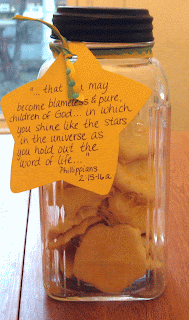 "... that I may
become blameless & pure,
children of God... in which
you shine like the stars
in the universe as
you hold out the
word of life..."
Philippians
2:15-16a